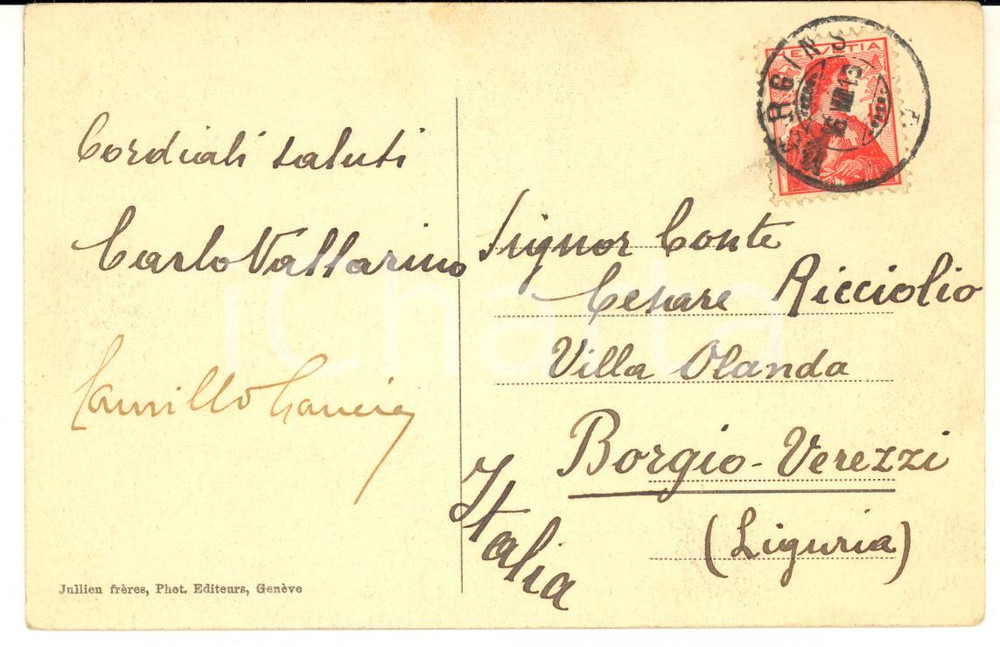 Cordiali saluti
Carlo Vallarino
Camillo
Jullien frères, Phot. Editeurs, Genève
HELVETIA
MORGINS
VIII 13
Signor Conte
Cesare Ricciolio
Villa Olanda
Borgio-Verezzi
(Liguria)
Italia
iCharta